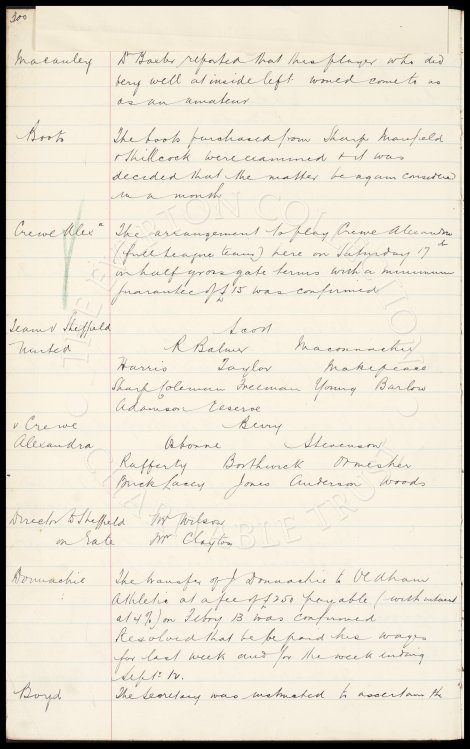 300
Macauley Dr Baxter reported that this player who did
very well at inside left would come to us
as an amateur
Boots The boots purchased from Sharp Mansfield
& Shillcock were examined & it was
decided that the matter be again considered
in a month
Crewe Alexa The arrangement to play Crewe Alexandra
(full league team) here on Saturday 17th
on half gross gate terms with a minimum
guarantee of £15 was confirmed
Team v Sheffield Scott
United R Balmer Maconnachie
Harris Taylor Makepeace
Sharp Coleman Freeman Young Barlow
Adamson Reserve
v Crewe Berry
Alexandra Osborne Stevenson
Rafferty Borthwick Ormesher
Buck Lacey Jones Anderson Woods
Director to Sheffield Mr Wilson
on Gate Mr Clayton
Donnachie The transfer of J Donnachie to Oldham
Athletic at a fee of £250 payable (with interest
at 4%) on Feby 13 was confirmed
Resolved that he be paid his wages
for last week and for the week ending
Sept
Boyd The Secretary was instructed to ascertain the
THE EVERTON COLLECTION
CHARITABLE TRUST